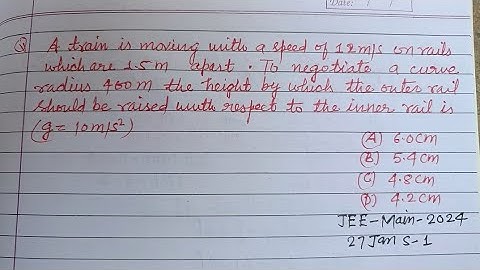 Date: / /
Q A train is moving with a speed of 12m/s on rails
which are 1.5m apart. To negotiate a curve
radius 400m the height by which the outer rail
should be raised with respect to the inner rail is
(g = 10m/s²)
(A) 6.0cm
(B) 5.4cm
(C) 4.8cm
(D) 4.2cm
JEE-Main-2024
27 Jan S-1